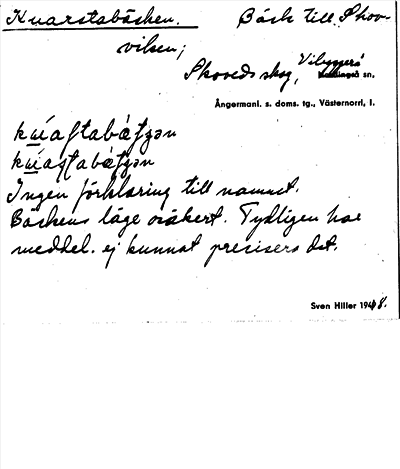 Kvarstabäcken. Bäck till Skov-
vilsen;
Skoveds skog, Vibyggerå
sn.
Ångermanl. s. doms. tg., Västernorrl. l.
Ingen förklaring till namnet.
Bäckens läge osäkert. Tydligen har
meddel. ej kunnat precisera det.
Sven Hiller 1948.